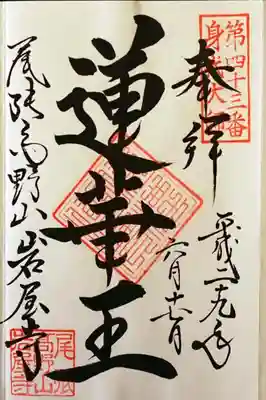 第四十三番
奉拝
平成二十九年
六月十七日
蓮華王
尾張高野山岩屋寺
尾張
高野山
岩屋寺